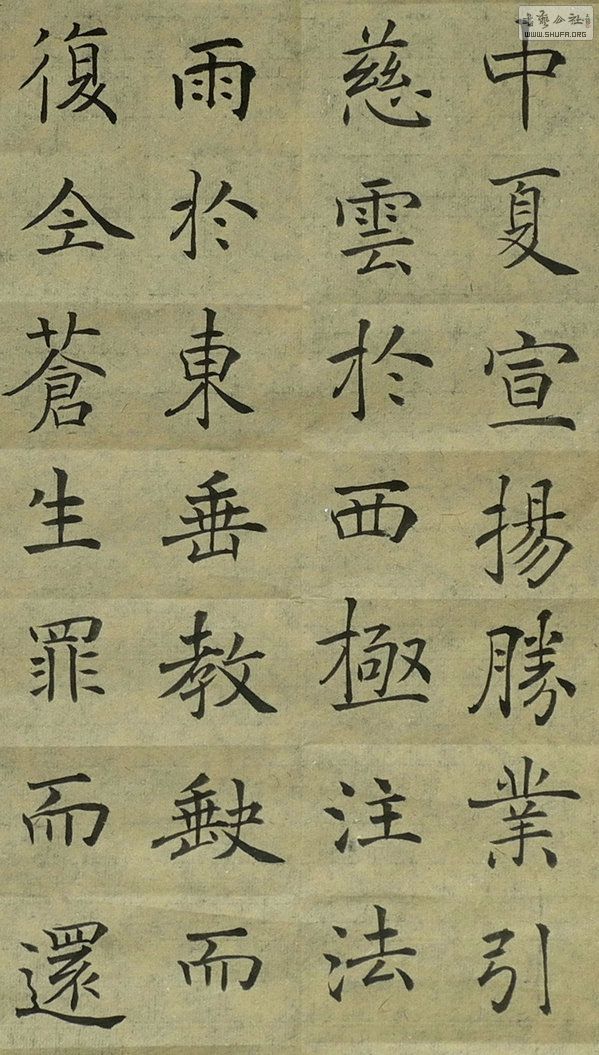 中夏宣揚勝業引
慈雲於西極注法
雨於東垂教缺而
復全蒼生罪而還
書藝公社
WWW.SHUFA.ORG